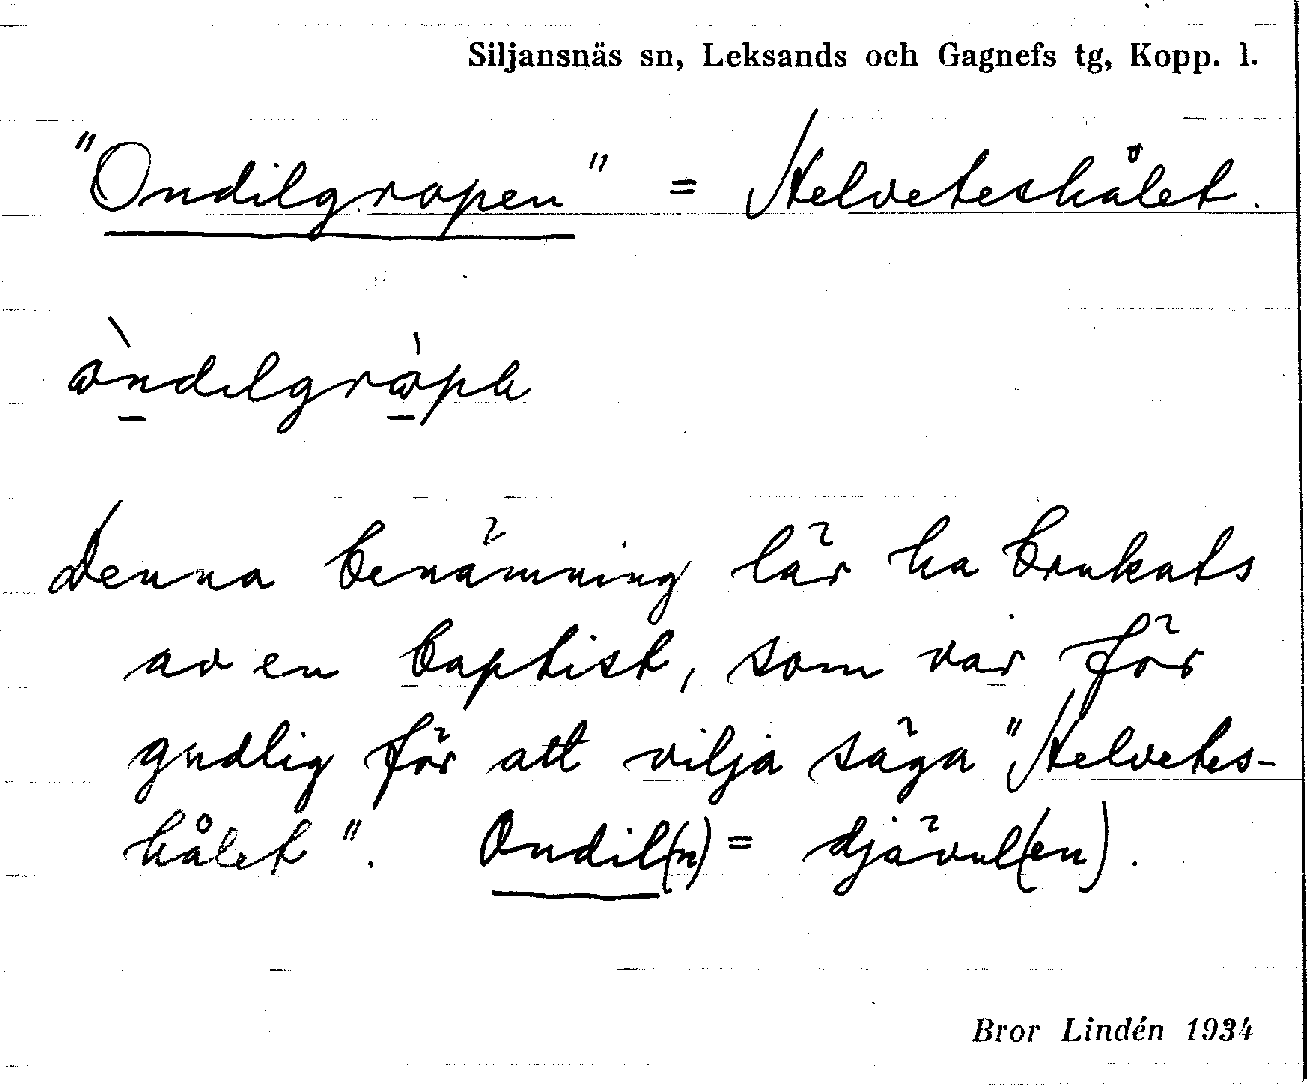 Siljansnäs sn, Leksands och Gagnefs tg, Kopp. l.
"Ondilgropen" = Helveteshålet.
Denna benämning lär ha brukats
av en baptist, som var för
gudlig för att vilja säga "Helvetes-
hålet". Ondil(n) = djävul(en).
Bror Lindén 1934